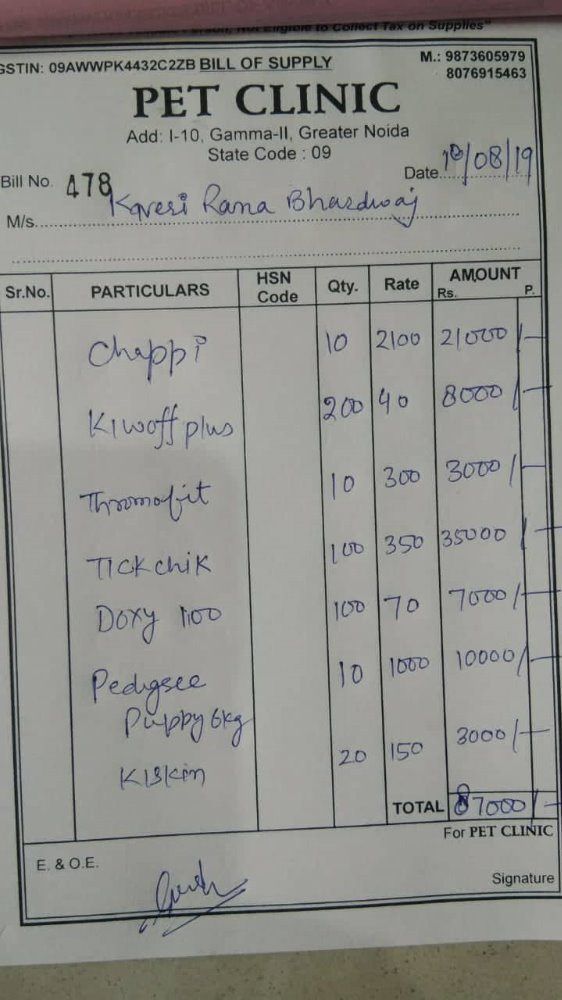 Person, Not Eligible to Collect Tax on Supplies"
GSTIN: 09AWWPK4432C2ZB BILL OF SUPPLY M.: 9873605979
8076915463
PET CLINIC
Add: I-10, Gamma-II, Greater Noida
State Code : 09
Bill No. 478 Date 10/08/19
M/s. Kaveri Rana Bhardwaj
Sr.No. PARTICULARS HSN Code Qty. Rate AMOUNT Rs. P.
Chappi 10 2100 21000/-
Kiwoff plus 200 40 8000/-
Thromofit 10 300 3000/-
TICK chik 100 350 35000/-
Doxy 100 100 70 7000/-
Pedigree 10 1000 10000/-
Puppy 6kg
Kiskin 20 150 3000/-
TOTAL 87000/-
For PET CLINIC
E. & O.E.
Signature